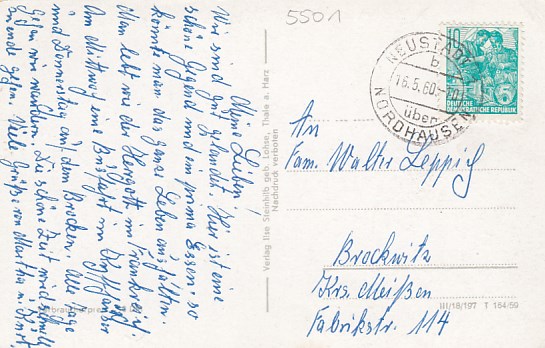 5501
Meine Lieben.
Wir sind gut gelandet. Hier ist eine
schöne Gegend und ein prima Essen. so
könnte man das ganze Leben aushalten.
Man lebt wie der Herrgott in Frankreich.
Am Mittwoch eine Busfahrt im
und Donnerstag auf dem Brocken. Alle Tage
gehen wir wandern. Die schöne Zeit wird schnell
zuende gehen. Viele Grüße von Martha u.
Verlag Ilse Steinhilb geb. Lohse, Thale a. Harz
Nachdruck verboten
NEUSTADT
b
16.5.60
über
NORDHAUSEN
10
DEUTSCHE
DEMOKRATISCHE REPUBLIK
An
Fam. Walter Leppich
Brockwitz
Krs. Meißen
Fabrikstr. 114
III/18/197 T 184/59